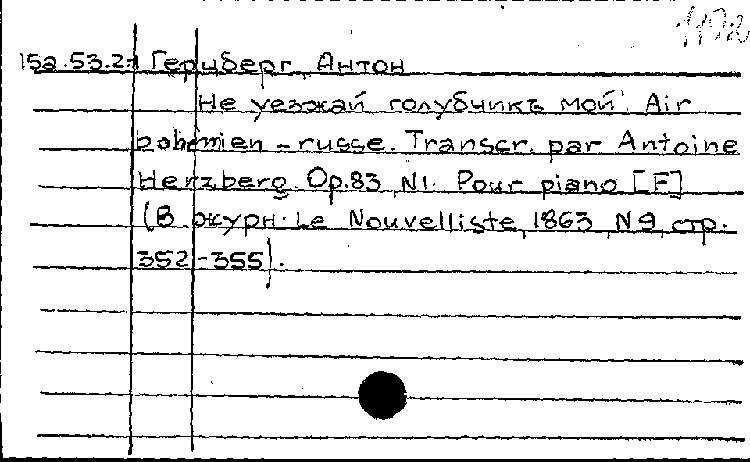 15a.53.2.1 Герцберг, Антон
Не уезжай голубчикъ мой. Air
bohémien-russe. Transcr. par Antoine
Herzberg. Op.83, N1. Pour piano [F]
(В журн. Le Nouvelliste, 1863, N9, стр.
352-355).